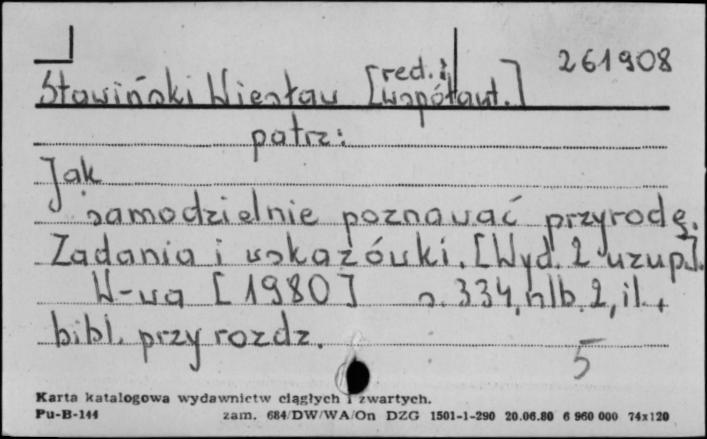 261908
Stawiński Wiesław [red. i
współaut.]
patrz:
Jak
samodzielnie poznawać przyrodę.
Zadania i wskazówki. [Wyd. 2 uzup.].
W-wa [1980] s. 334, nlb. 2, il.,
bibl. przy rozdz.
5
Karta katalogowa wydawnictw ciągłych i zwartych.
Pu-B-144 zam. 684/DW/WA/On DZG 1501-1-290 20.06.80 6 960 000 74x120